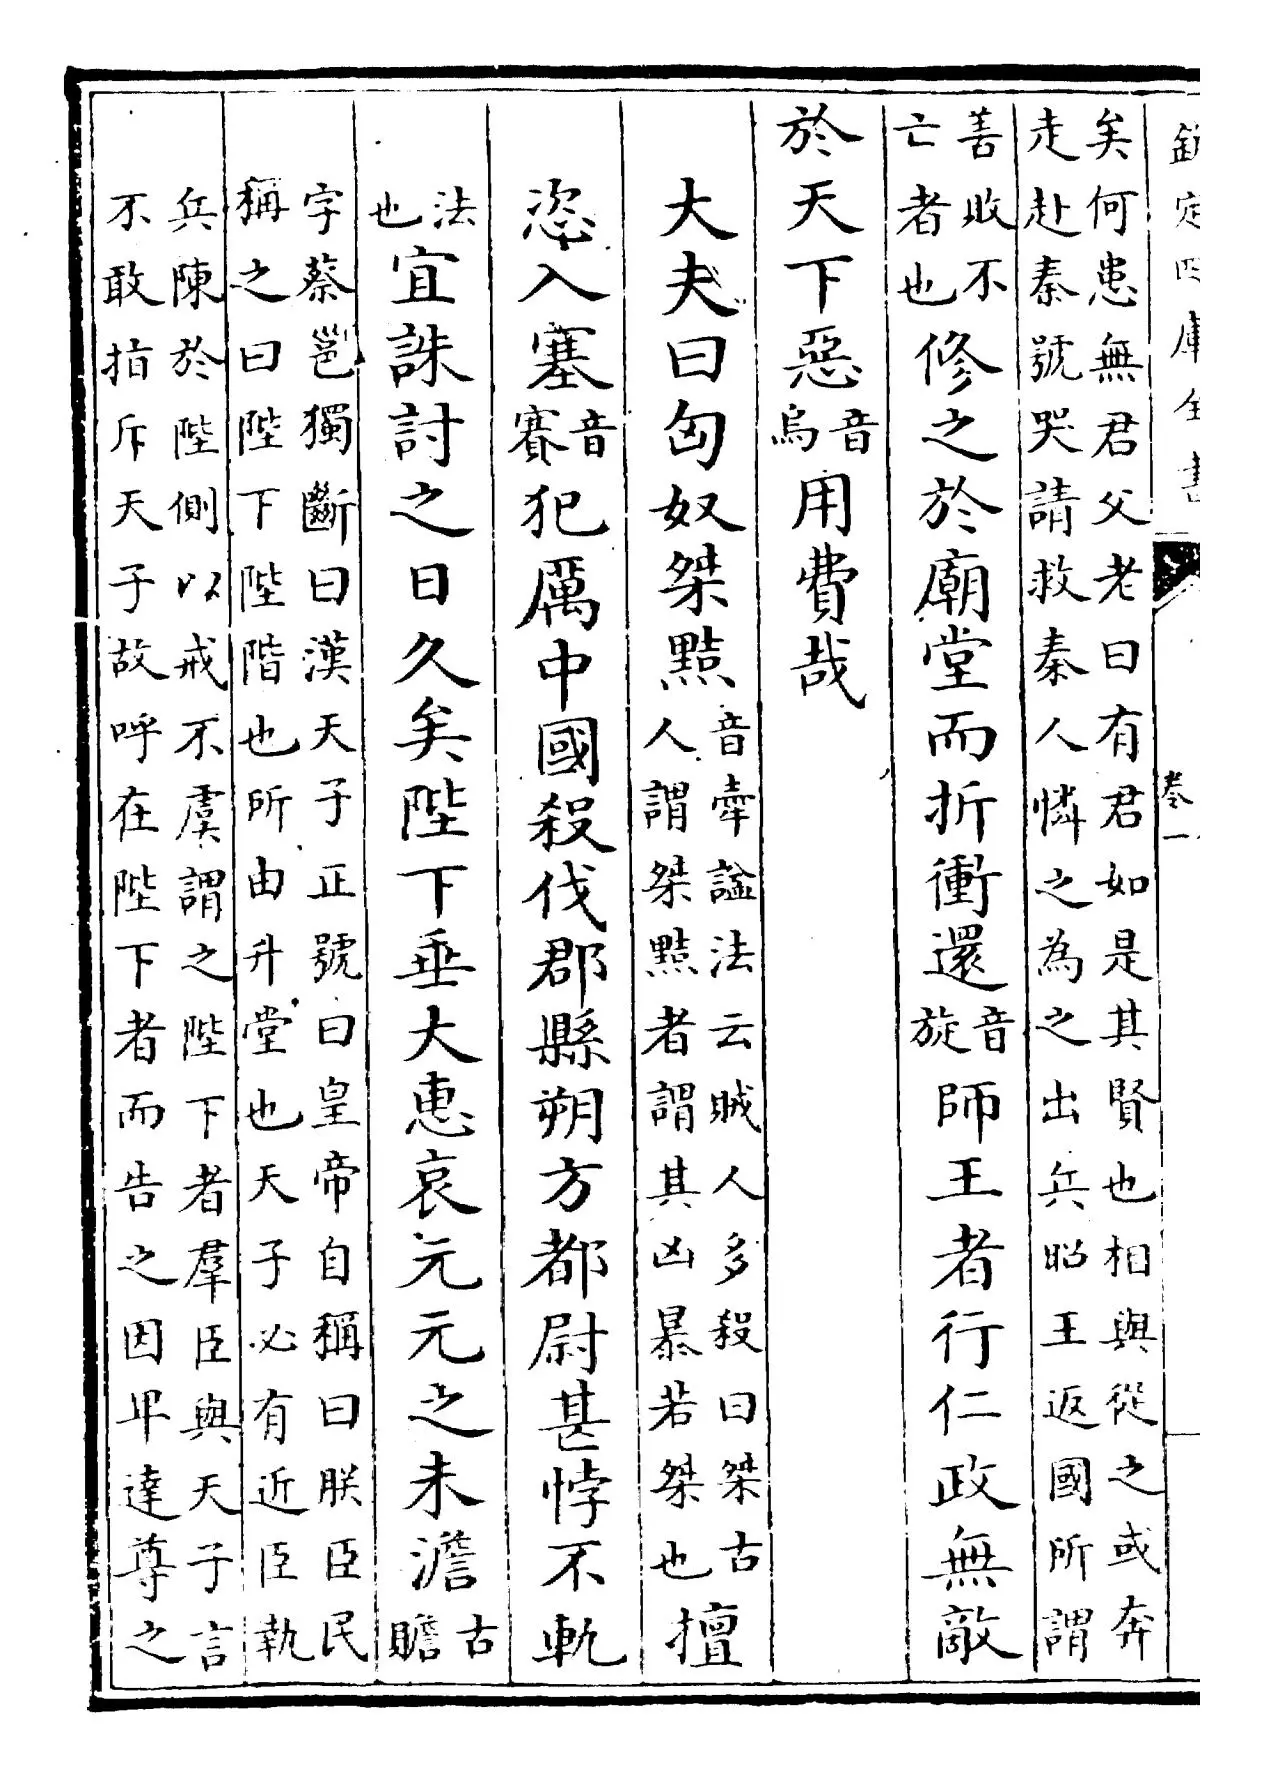 欽定四庫全書
卷一
矣何患無君父老曰有君如是其賢也相與從之或奔
走赴秦號哭請救秦人憐之為之出兵昭王返國所謂
善敗不
亡者也
修之於廟堂而折衝還
音
旋
師王者行仁政無敵
於天下惡
音
烏
用費哉
大夫曰匈奴桀黠
音牽諡法云賊人多殺曰桀古
人謂桀黠者謂其凶暴若桀也
擅
恣入塞
音
賽
犯厲中國殺伐郡縣朔方都尉甚悖不軌
法
也
宜誅討之日久矣陛下垂大惠哀元元之未澹
古
贍
字蔡邕獨斷曰漢天子正號曰皇帝自稱曰朕臣民
稱之曰陛下陛階也所由升堂也天子必有近臣執
兵陳於陛側以戒不虞謂之陛下者羣臣與天子言
不敢指斥天子故呼在陛下者而告之因卑達尊之